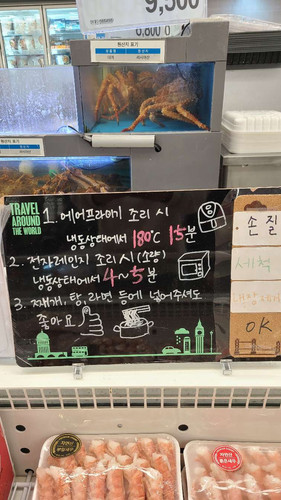 9,500
원산지 표기
원산지 표기
TRAVEL
AROUND
THE WORLD
1. 에어프라이기 조리 시
냉동상태에서 180℃ 15분
2. 전자레인지 조리 시(소량)
냉동상태에서 4~5분
3. 찌개, 탕, 라면 등에 넣어주셔도
좋아요
손질
세척
OK